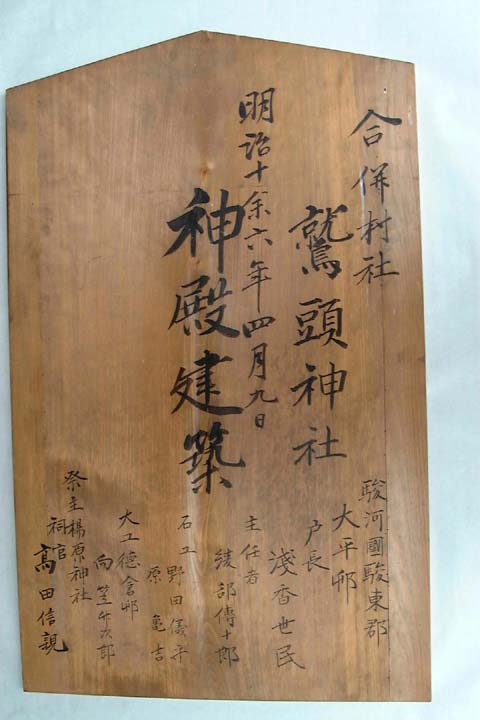 合併村社
鷲頭神社
明治十余六年四月九日
神殿建築
駿河國駿東郡
大平邨
戸長
淺香世民
主任者
綾部傳十郎
石工
野田儀平
原亀吉
大工徳倉邨
向笠弁次郎
祭主楊原神社
祠官
髙田信親